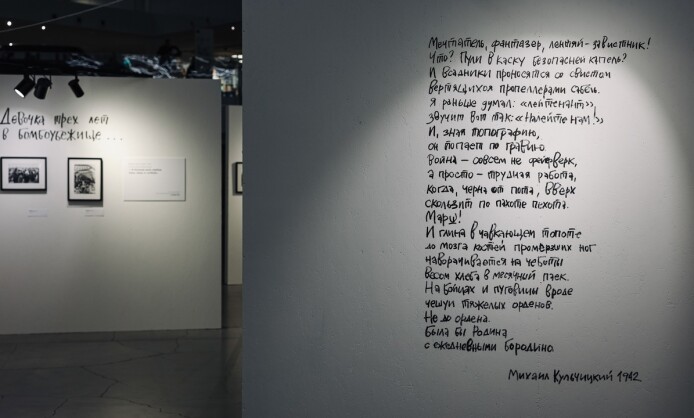 Девочка трех лет
в бомбоубежище...
Мечтатель, фантазер, лентяй-завистник!
Что? Пули в каску безопасней капель?
И всадники проносятся со свистом
вертящихся пропеллерами сабель.
Я раньше думал: «лейтенант»,
звучит вот так: «Налейте нам!»
И, зная топографию,
он топает по гравию
Война – совсем не фейерверк,
а просто – трудная работа,
когда, черна от пота, вверх
скользит по пахоте пехота.
Марш!
И глина в чавкающем топоте
до мозга костей промерзших ног
наворачивается на чеботы
весом хлеба в месячный паек.
На бойцах и пуговицы вроде
чешуи тяжелых орденов.
Не до ордена.
Была бы Родина
с ежедневными Бородино.
Михаил Кульчицкий 1942